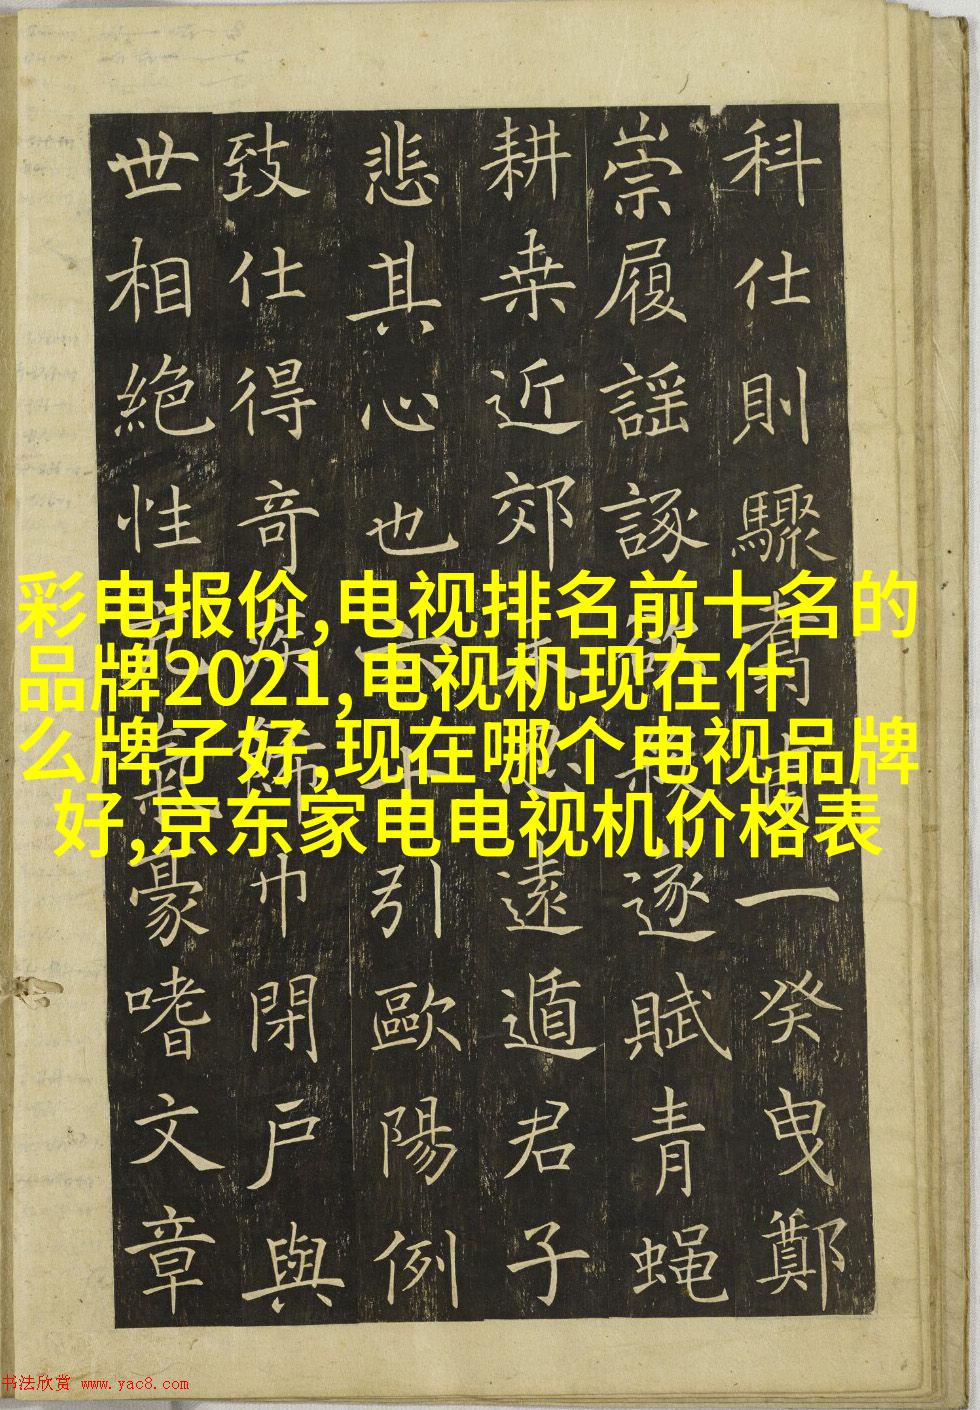 彩电报价,电视排名前十名的
品牌2021,电视机现在什
么牌子好,现在哪个电视品牌
好,京东家电电视机价格表
科仕則驟一癸曳鄭
崇履謡諑逐賦青蝿
耕桒近郊遠遁君子
悲其心也引歐陽例
致仕得奇巾閉戸與
世相絶性豪嗜文章
书法欣赏 www.yac8.com